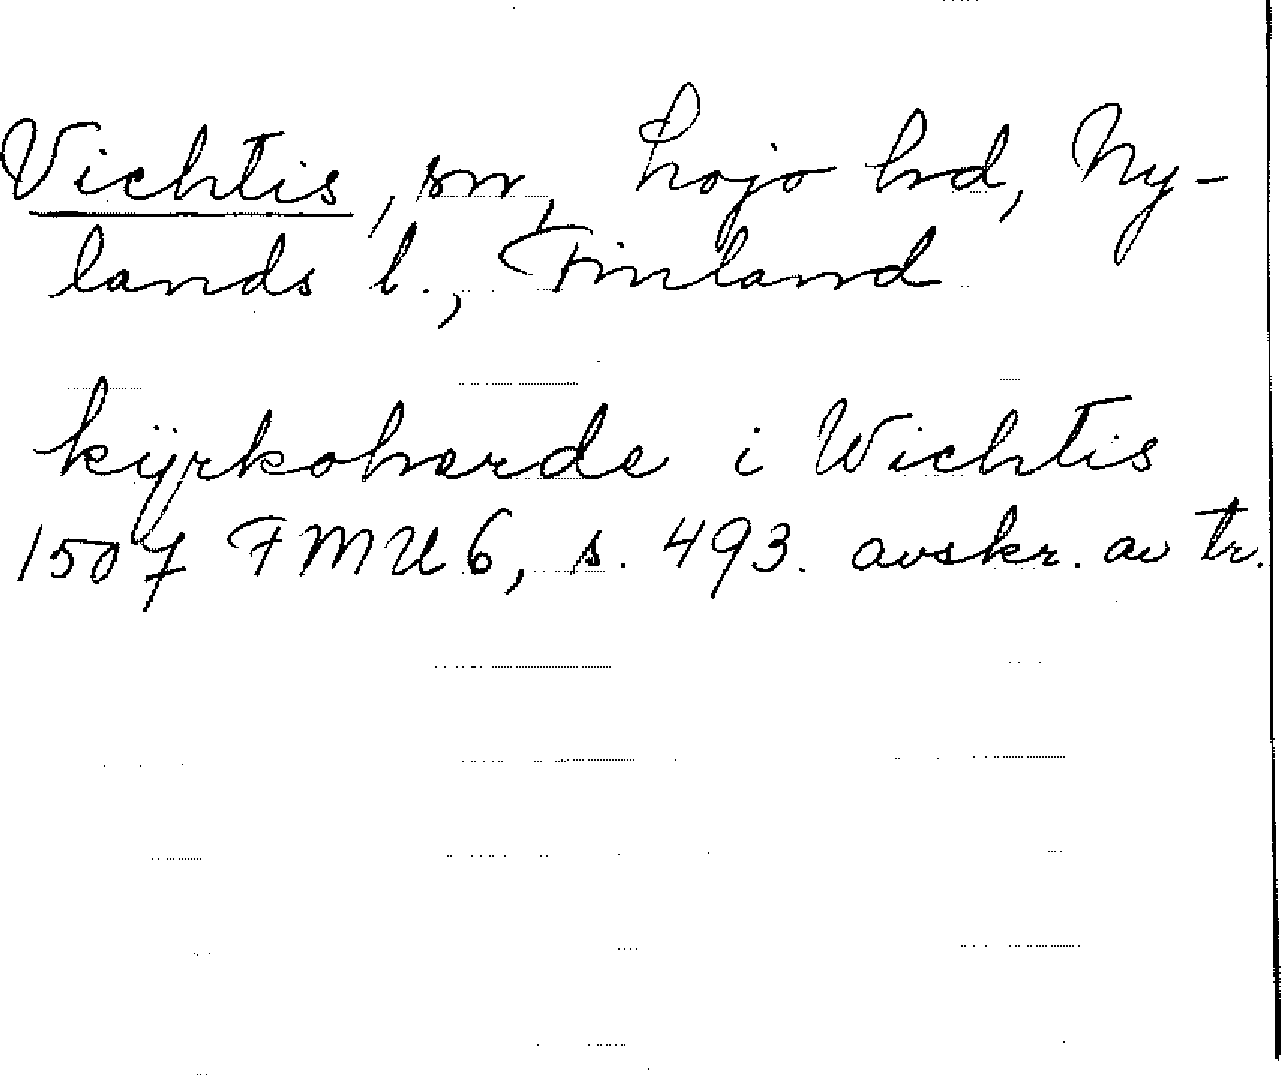 Vichtis, sn, Lojo hd, Ny-
lands l., Finland
kÿrkoherde i Wichtis
1507 FMU 6, s. 493. avskr. av tr.